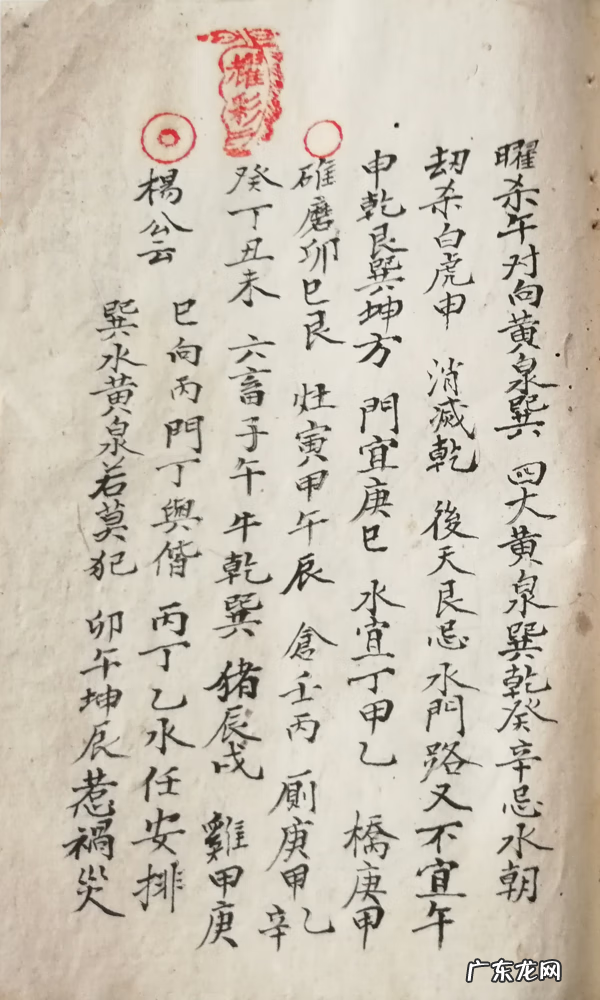 曜杀午对向黄泉巽　四大黄泉巽乾癸辛忌水朝
劫杀白虎申　消滅乾　後天艮忌水門路又不宜午
申乾艮巽坤方　門宜庚巳　水宜丁甲乙　橋庚甲
碓磨卯巳艮　灶寅甲午辰　倉壬丙　厠庚甲乙辛
癸丁丑未　六畜子午牛乾巽　猪辰戌　雞甲庚
楊公云　巳向丙門丁與偕　丙丁乙水任安排
巽水黄泉若莫犯　卯午坤辰惹禍災
耀彩
广东龙网